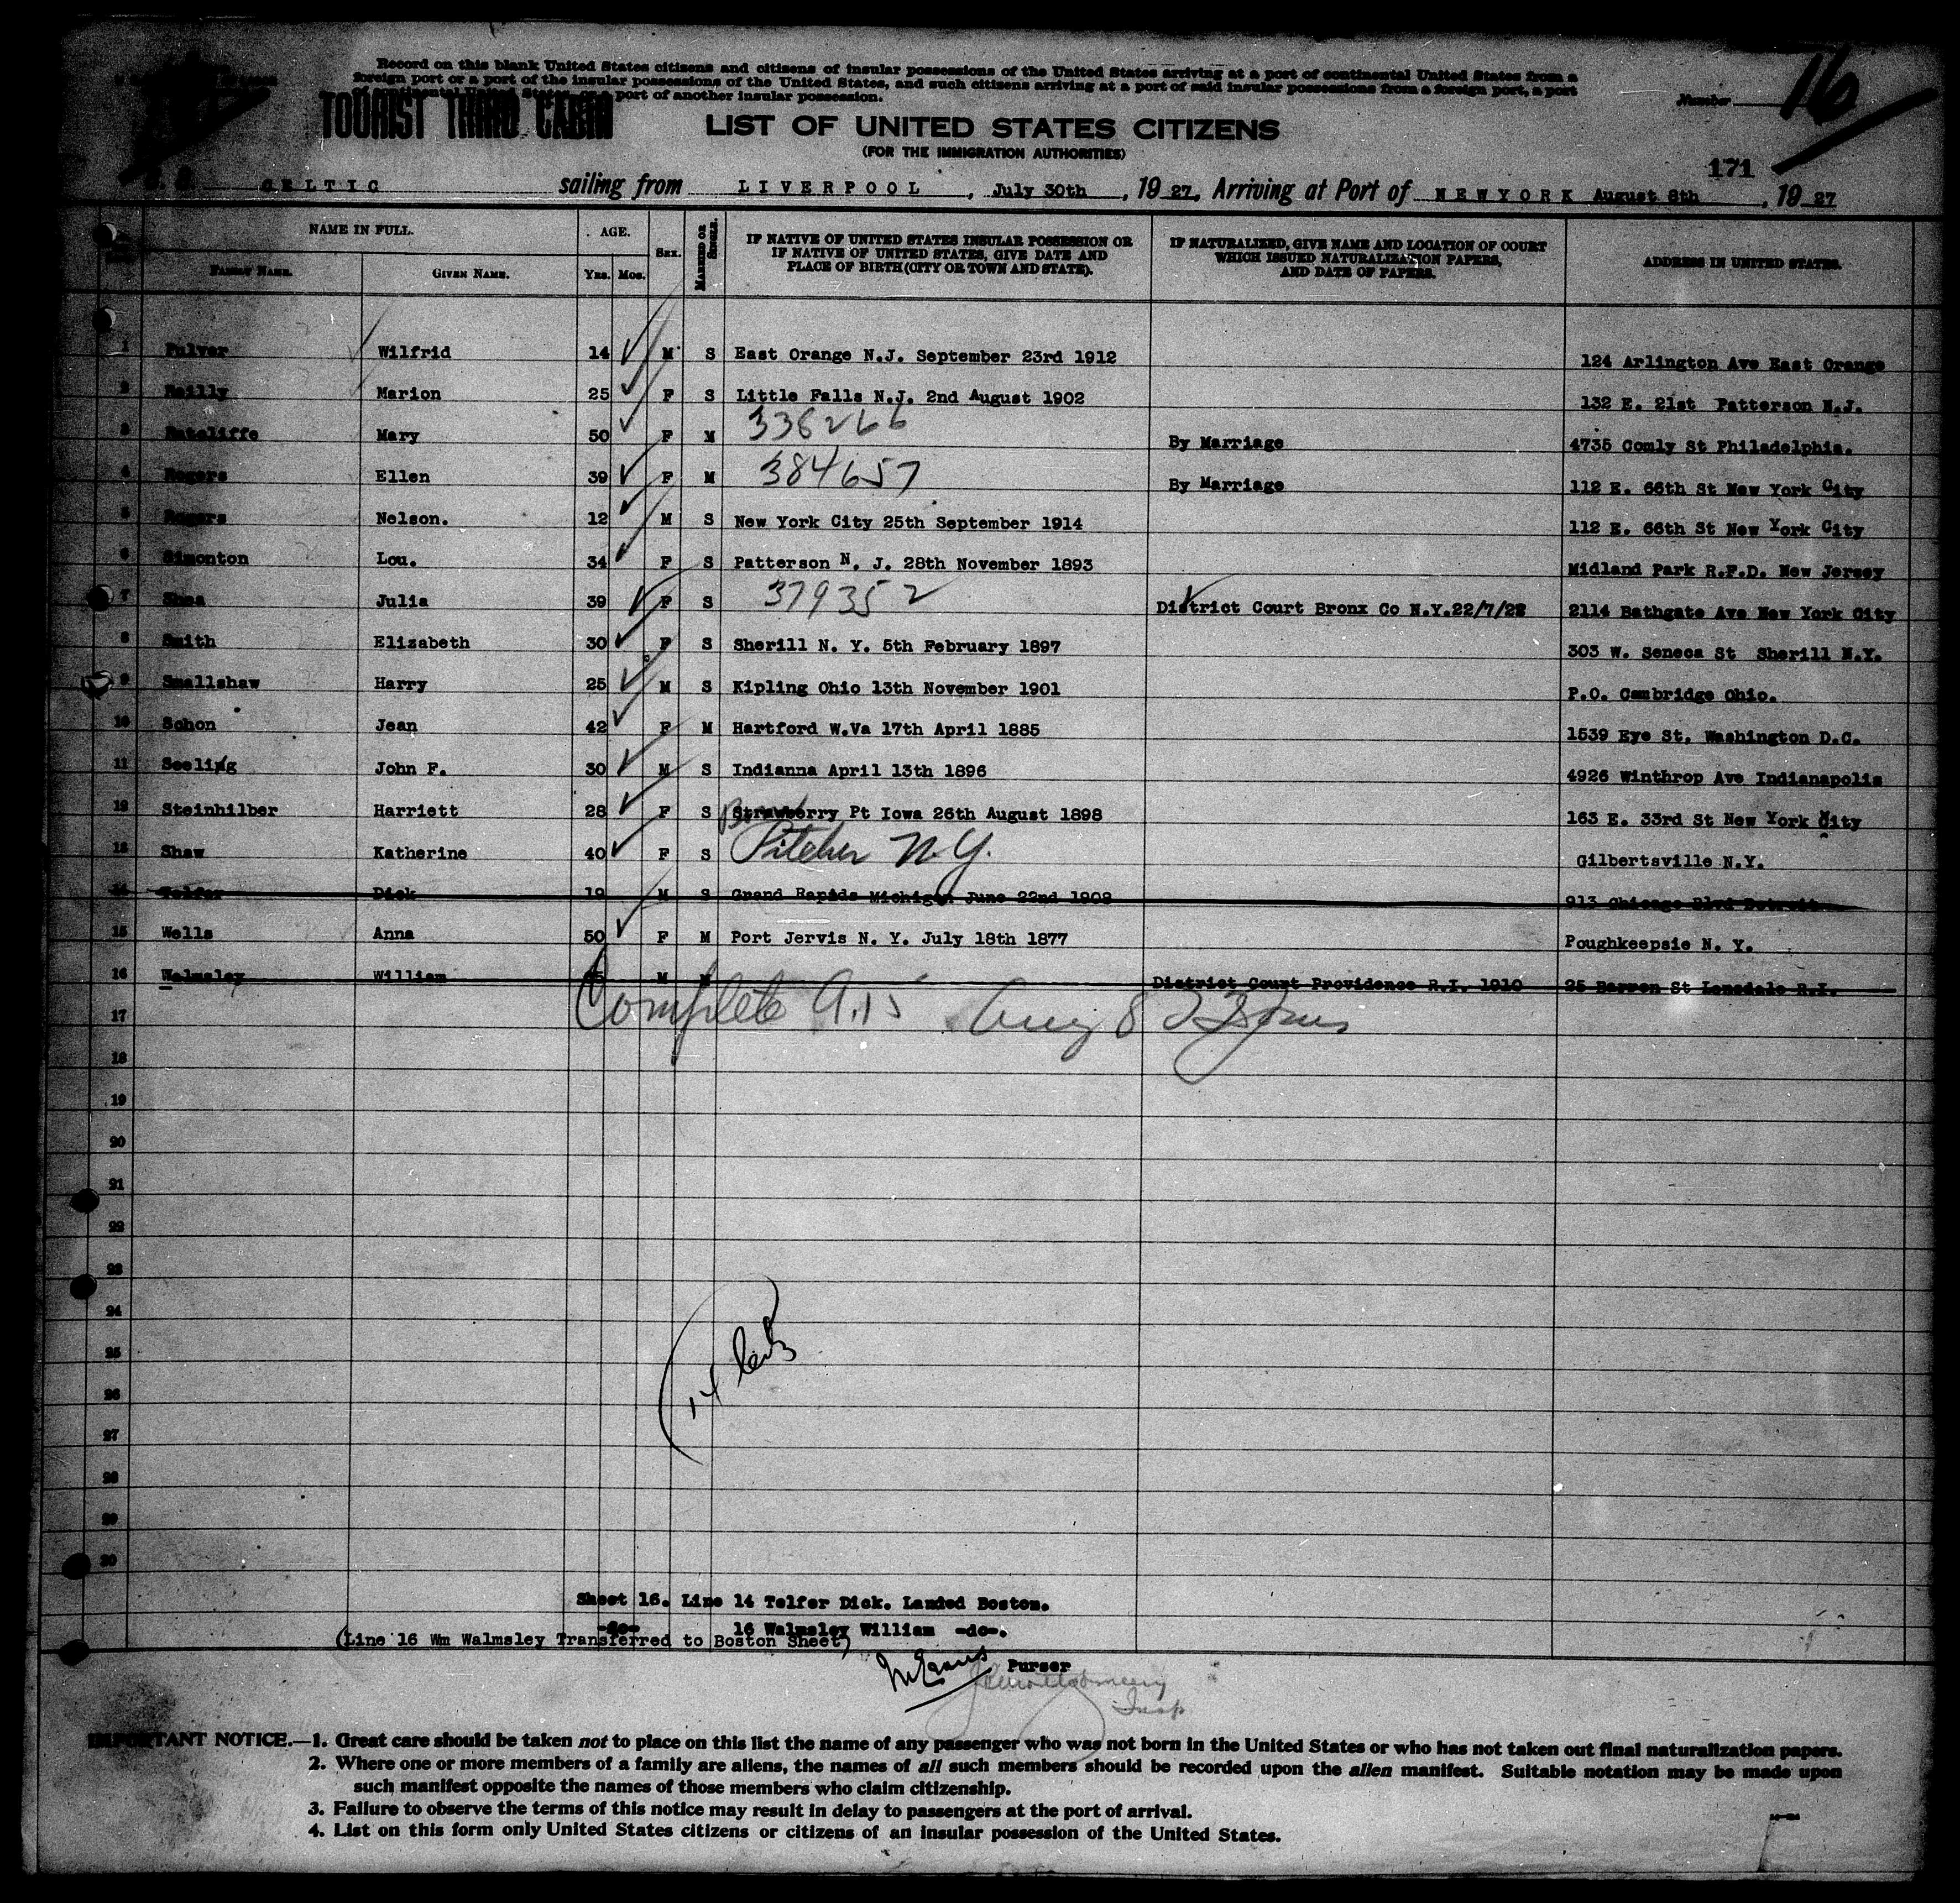 Record on this blank United States citizens and citizens of insular possessions of the United States arriving at a port of continental United States from a
foreign port or a port of the insular possessions of the United States, and such citizens arriving at a port of said insular possessions from a foreign port, a port
of continental United States, or a port of another insular possession.
TOURIST THIRD CABIN
Number 16
LIST OF UNITED STATES CITIZENS
(FOR THE IMMIGRATION AUTHORITIES)
171
S. S. CELTIC sailing from LIVERPOOL, July 30th, 1927, Arriving at Port of NEWYORK August 8th, 1927
NAME IN FULL. AGE. SEX. MARRIED OR SINGLE. IF NATIVE OF UNITED STATES INSULAR POSSESSION OR IF NATIVE OF UNITED STATES, GIVE DATE AND PLACE OF BIRTH (CITY OR TOWN AND STATE). IF NATURALIZED, GIVE NAME AND LOCATION OF COURT WHICH ISSUED NATURALIZATION PAPERS, AND DATE OF PAPERS. ADDRESS IN UNITED STATES.
FAMILY NAME. GIVEN NAME. Yrs. Mos.
1 Pulver Wilfrid 14 M S East Orange N.J. September 23rd 1912 124 Arlington Ave East Orange
2 Reilly Marion 25 F S Little Falls N.J. 2nd August 1902 132 E. 21st Patterson N.J.
3 Ratcliffe Mary 50 F M 336266 By Marriage 4735 Comly St Philadelphia.
4 Rogers Ellen 39 F M 384657 By Marriage 112 E. 66th St New York City
5 Rogers Nelson. 12 M S New York City 25th September 1914 112 E. 66th St New York City
6 Simonton Lou. 34 F S Patterson N. J. 28th November 1893 Midland Park R.F.D. New Jersey
7 Shea Julia 39 F S 379352 District Court Bronx Co N.Y.22/7/22 2114 Bathgate Ave New York City
8 Smith Elizabeth 30 F S Sherill N. Y. 5th February 1897 303 W. Seneca St Sherill N.Y.
9 Smallshaw Harry 25 M S Kipling Ohio 13th November 1901 P.O. Cambridge Ohio.
10 Schon Jean 42 F M Hartford W.Va 17th April 1885 1539 Eye St. Washington D.C.
11 Seeling John F. 30 M S Indianna April 13th 1896 4926 Winthrop Ave Indianapolis
12 Steinhilber Harriett 28 F S Strawberry Pt Iowa 26th August 1898 163 E. 33rd St New York City
13 Shaw Katherine 40 F S Pitcher N.Y. Gilbertsville N.Y.
14 Telfer Dick 19 M S Grand Rapids Michigan June 22nd 1908 913 Chicago Blvd Detroit
15 Wells Anna 50 F M Port Jervis N. Y. July 18th 1877 Poughkeepsie N. Y.
16 Walmsley William M M District Court Providence R.I. 1910 25 Barren St Lonsdale R.I.
17 Complete 9.15 Aug 8
18
19
20
21
22
23
24
25
26
27
28
29
30
14
Sheet 16. Line 14 Telfer Dick. Landed Boston.
-do- 16 Walmsley William -do-.
(Line 16 Wm Walmsley Transferred to Boston Sheet)
Purser
Montgomery
Insp
IMPORTANT NOTICE.—1. Great care should be taken not to place on this list the name of any passenger who was not born in the United States or who has not taken out final naturalization papers.
2. Where one or more members of a family are aliens, the names of all such members should be recorded upon the alien manifest. Suitable notation may be made upon
such manifest opposite the names of those members who claim citizenship.
3. Failure to observe the terms of this notice may result in delay to passengers at the port of arrival.
4. List on this form only United States citizens or citizens of an insular possession of the United States.